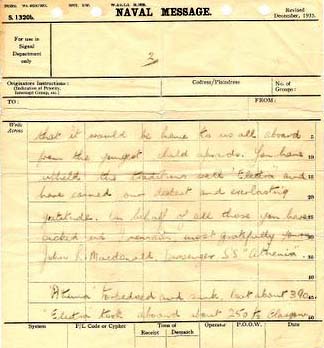 S. 1320b.
NAVAL MESSAGE.
Revised
December, 1935.
For use in
Signal
Department
only
3
Originators Instructions:
(Indication of Priority,
Intercept Group, etc.)
Codress/Plaindress
No. of
Groups:
TO:
FROM:
Write
Across
that it would be home to us all aboard
from the youngest child upwards. You have
upheld the traditions with "Electra" and
have earned our deepest and everlasting
gratitude. On behalf of all those you have
picked up I remain most gratefully yours
John R. Macdonald, Passenger SS "Athenia".
"Athenia" torpedoed and sunk, lost about 390
"Electra" took aboard about 250 to Glasgow
5
10
15
20
25
30
35
40
45
50
System
P/L Code or Cypher
Time of
Receipt
Despatch
Operator
P.O.O.W.
Date